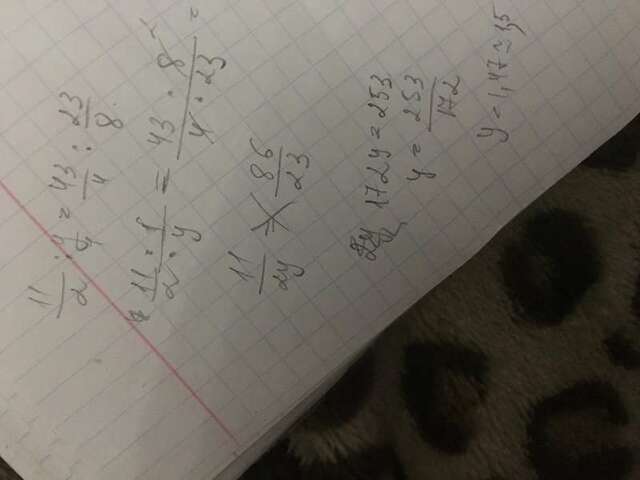 11/2 : y/1 = 43/4 : 23/8
11 · 1 / 2 · y = 43 · 8 / 4 · 23 =
11/2y = 86/23
172y = 253
y = 253/172
y = 1,47 ≈ 1,5